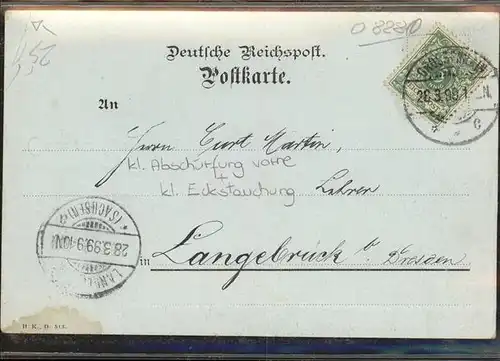 O 8280
Deutsche Reichspost.
Postkarte.
An
28.3.99
Herrn Curt Martin,
kl. Abschürfung vorne
+
kl. Eckstauchung
Lehrer
(SACHSEN)
28.3.99.9-10N
in Langebrück b. Dresden